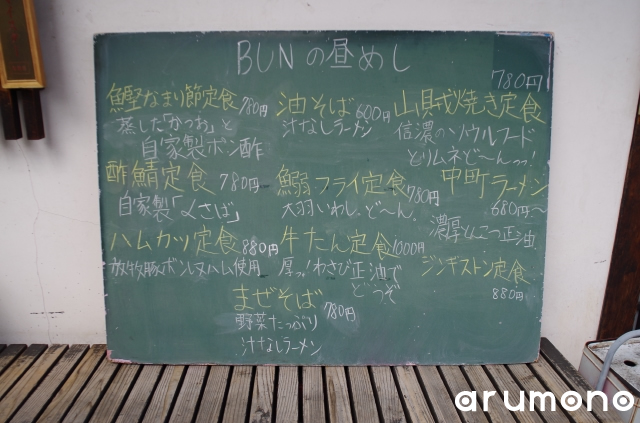 BUNの昼めし
鰹なまり節定食 780円
蒸した「かつお」と
自家製ポン酢
油そば 600円
汁なしラーメン
780円
山賊焼き定食
信濃のソウルフード
とりムネど〜んっ!
酢鯖定食 780円
自家製「〆さば」
鰯フライ定食 780円
大羽いわし、ど〜ん。
中町ラーメン
680円〜
濃厚とんこつ正油
ハムカツ定食 880円
放牧豚ボンレスハム使用
牛たん定食 1000円
厚っ!わさび正油で
どうぞ
ジンギストン定食
880円
まぜそば 780円
野菜たっぷり
汁なしラーメン
arumono